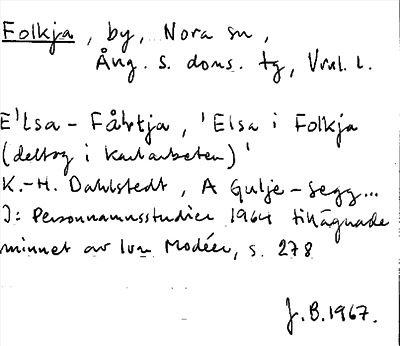 Folkja, by, Nora sn,
Ång. s. doms. tg, Vnl. l.
E'lsa-Fåltja, 'Elsa i Folkja
(deltog i karlarbeten)'
K.-H. Dahlstedt, A Gulje-Segg...
I: Personnamnsstudier 1964 tillägnade
minnet av Ivar Modéer, s. 278
J.B. 1967.